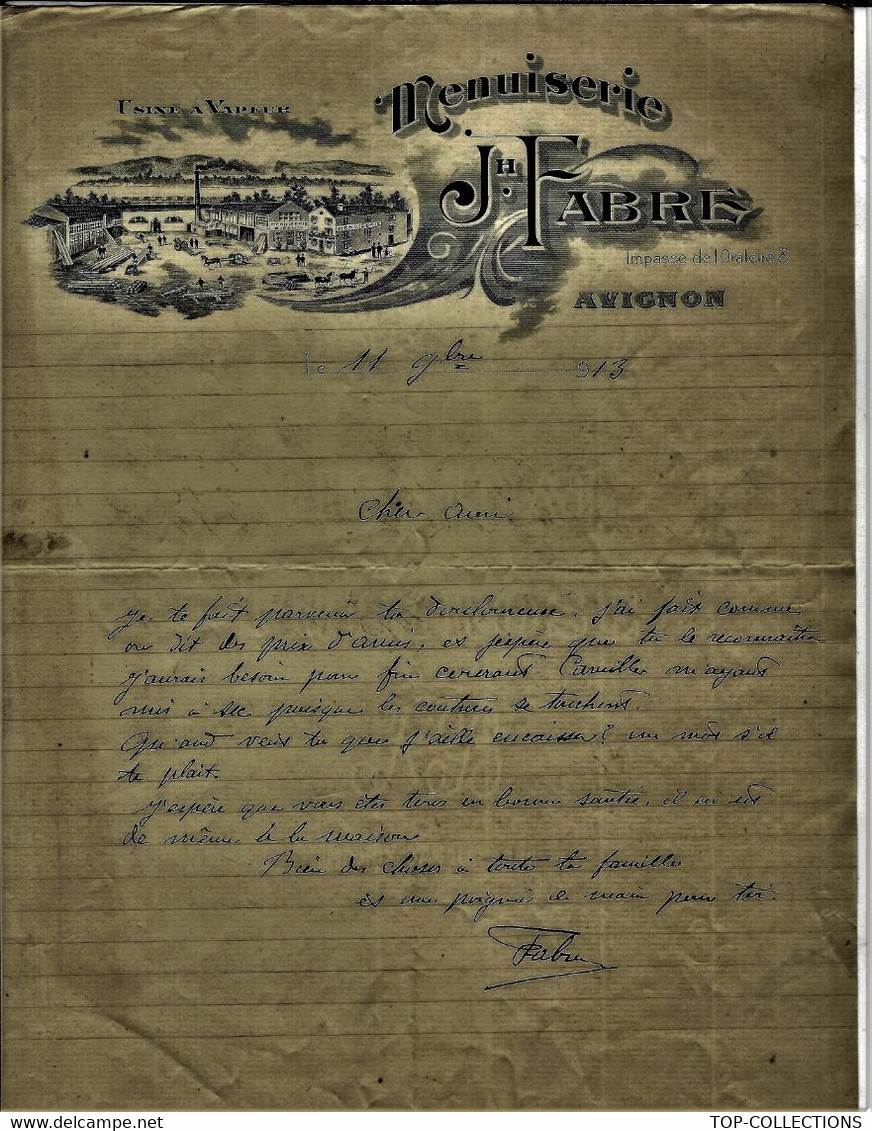 USINE A VAPEUR
Menuiserie
JH. FABRE
Impasse de l'Oratoire 8
AVIGNON
le 11 9bre 913
Cher ami
Je te fait parvenir ta douloureuse, j'ai fait comme
on dit des prix d'amis, et j'espère que tu le reconnaîtra
j'aurais besoin pour fin courant Camille m'ayant
mis à sec puisque les coutures se touchent.
Quand veux tu que j'aille encaisser? un mot s'il
te plait.
J'espère que vous êtes tous en bonne santée, il en est
de même à la maison
Bien des choses à toute ta famille
et une poignée de main pour toi.
Fabre
TOP-COLLECTIONS